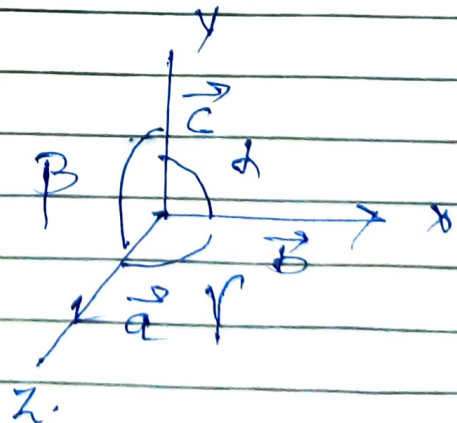 y
c⃗
β α
x
b⃗
a⃗ γ
z.